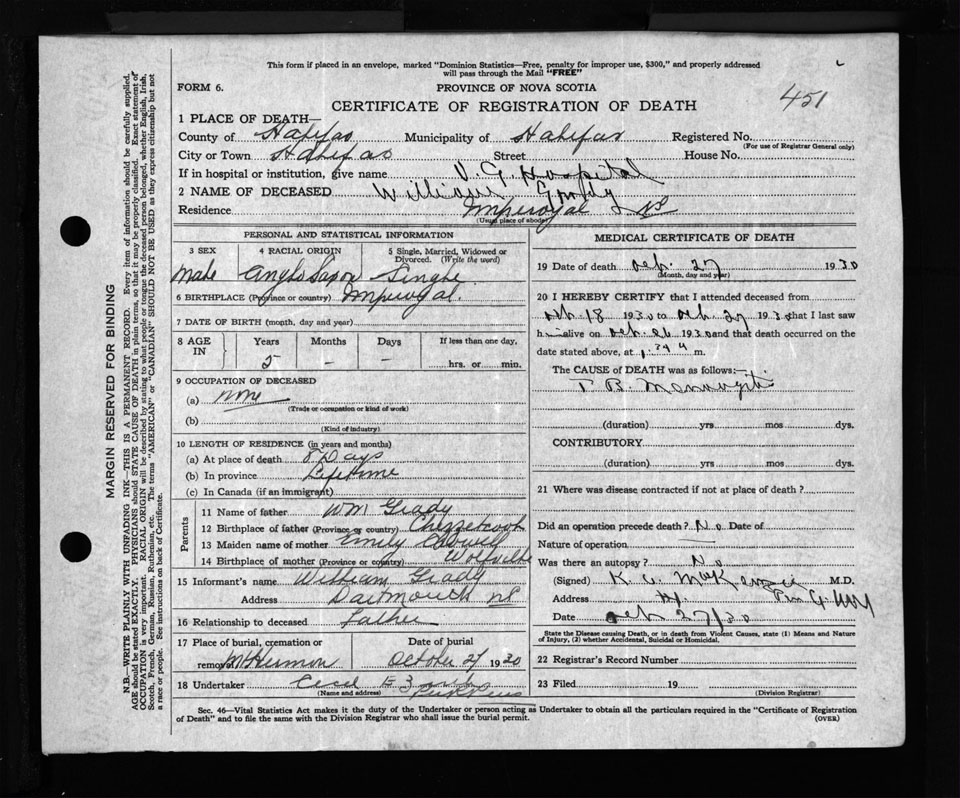 This form if placed in an envelope, marked "Dominion Statistics—Free, penalty for improper use, $300," and properly addressed
will pass through the Mail "FREE"
FORM 6.
PROVINCE OF NOVA SCOTIA
CERTIFICATE OF REGISTRATION OF DEATH
451
1 PLACE OF DEATH—
County of Halifax Municipality of Halifax Registered No.
(For use of Registrar General only)
City or Town Halifax Street House No.
If in hospital or institution, give name V. G. Hospital
2 NAME OF DECEASED William Grady
Residence Imperoyal NS
(Usual place of abode)
PERSONAL AND STATISTICAL INFORMATION
3 SEX 4 RACIAL ORIGIN 5 Single, Married, Widowed or Divorced. (Write the word)
Male Anglo Saxon Single
6 BIRTHPLACE (Province or country) Imperoyal.
7 DATE OF BIRTH (month, day and year)
8 AGE IN Years Months Days If less than one day,
5 – – hrs. or min.
9 OCCUPATION OF DECEASED
(a) none
(Trade or occupation or kind of work)
(b)
(Kind of industry)
10 LENGTH OF RESIDENCE (in years and months)
(a) At place of death 8 Days
(b) In province Lifetime
(c) In Canada (if an immigrant)
Parents
11 Name of father Wm Grady
12 Birthplace of father (Province or country) Chezzetcook
13 Maiden name of mother Emily
14 Birthplace of mother (Province or country) Wolfville
15 Informant's name William Grady
Address Dartmouth NS
16 Relationship to deceased Father
17 Place of burial, cremation or Date of burial
removal Mt Hermon October 27 1930
18 Undertaker Cecil E
(Name and address)
MEDICAL CERTIFICATE OF DEATH
19 Date of death Oct. 27 1930
(Month, day and year)
20 I HEREBY CERTIFY that I attended deceased from
Oct 18 1930 to Oct. 27 1930 that I last saw
h alive on Oct. 26 1930 and that death occurred on
date stated above, at m.
The CAUSE of DEATH was as follows:—
T. B. Meningitis
(duration) yrs mos dys.
CONTRIBUTORY
(duration) yrs. mos dys.
21 Where was disease contracted if not at place of death?
Did an operation precede death? No Date of
Nature of operation
Was there an autopsy? No
(Signed) K. A. McKenzie M.D.
Address
Date Oct 27/30
State the Disease causing Death, or in death from Violent Causes, state (1) Means and Nature
of Injury, (2) whether Accidental, Suicidal or Homicidal.
22 Registrar's Record Number
23 Filed 19
(Division Registrar)
Sec. 46—Vital Statistics Act makes it the duty of the Undertaker or person acting as Undertaker to obtain all the particulars required in the "Certificate of Registration
of Death" and to file the same with the Division Registrar who shall issue the burial permit.
(OVER)
MARGIN RESERVED FOR BINDING
N.B.—WRITE PLAINLY WITH UNFADING INK—THIS IS A PERMANENT RECORD. Every item of information should be carefully supplied.
AGE should be stated EXACTLY. PHYSICIANS should STATE CAUSE OF DEATH in plain terms, so that it may be properly classified. Exact statement of
OCCUPATION is very important. RACIAL ORIGIN will be described by stating to what people or tongue the deceased person belonged, whether English, Irish,
Scotch, French, German, Russian, Ruthenian, etc. The terms "AMERICAN" or "CANADIAN" SHOULD NOT BE USED as they express citizenship but not
a race or people. See instructions on back of Certificate.